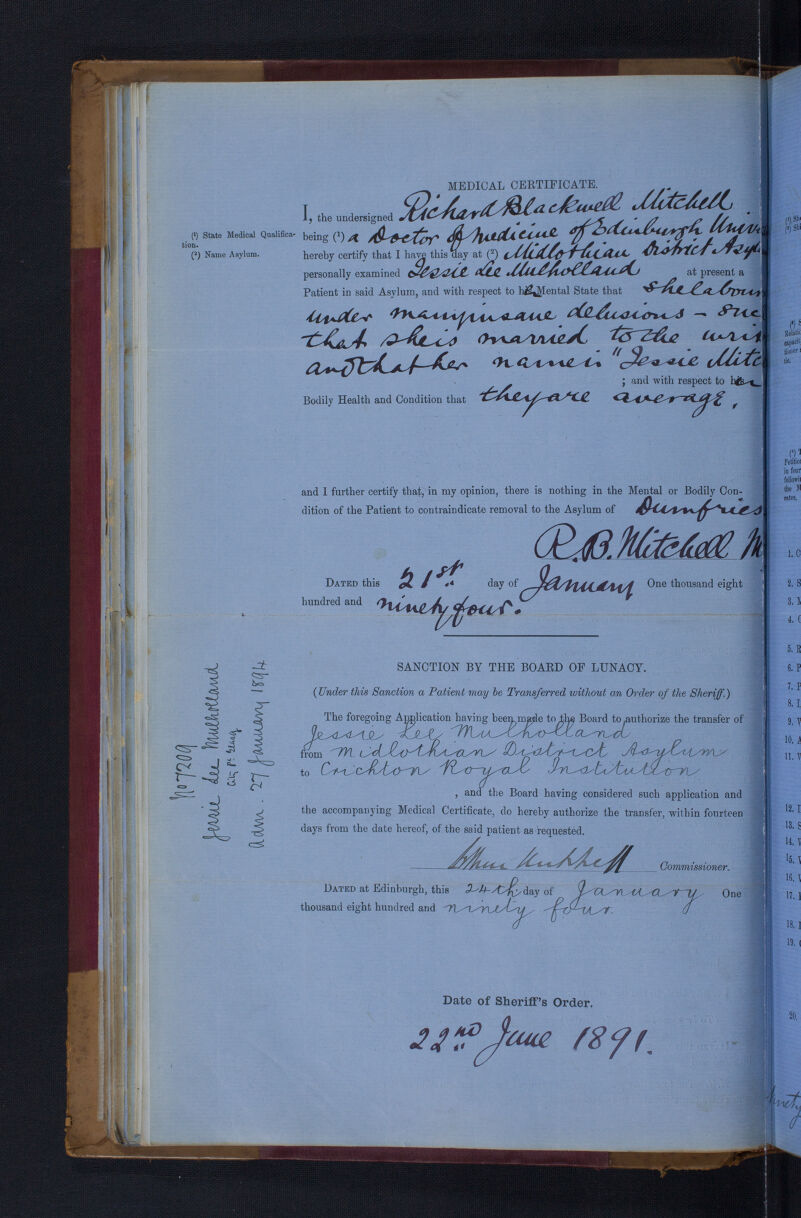 MEDICAL CERTIFICATE.
I, the undersigned Richard Blackwell Mitchell
(¹) State Medical Qualifica-
tion.
(²) Name Asylum.
being (¹) a Doctor of Medicine of Edinburgh Univ
hereby certify that I have this day at (²) Midlothian District Asyl
personally examined Jessie Lee Mulholland at present a
Patient in said Asylum, and with respect to her Mental State that She labours
under many insane delusions – such
that she is married to the writ
and that her name is "Jessie Mitc
; and with respect to her
Bodily Health and Condition that they are average.
and I further certify that, in my opinion, there is nothing in the Mental or Bodily Con-
dition of the Patient to contraindicate removal to the Asylum of Dumfries
R.B. Mitchell M
DATED this 21st day of January One thousand eight
hundred and ninety four.
SANCTION BY THE BOARD OF LUNACY.
(Under this Sanction a Patient may be Transferred without an Order of the Sheriff.)
The foregoing Application having been made to the Board to authorize the transfer of
Jessie Lee Mulholland
from Midlothian District Asylum
to Crichton Royal Institution
, and the Board having considered such application and
the accompanying Medical Certificate, do hereby authorize the transfer, within fourteen
days from the date hereof, of the said patient as requested.
Commissioner.
DATED at Edinburgh, this 24th day of January One
thousand eight hundred and ninety four.
Date of Sheriff's Order.
22nd June 1891.
No 7209
Jessie Lee Mulholland
Adm. 27 January 1894